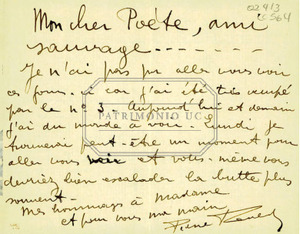 Mon cher Poète, ami
sauvage - - - - - - -
Je n'ai pas pu aller vous voir
ces jours-ci car j'ai été très occupé
par le nº 3. Aujourd'hui et demain
j'ai du monde à voir. Lundi je
trouverai peut-être un moment pour
aller vous voir et vous-même vous
devriez bien escalader la butte plus
souvent.
Mes hommages à madame
et pour vous ma main
Pierre
PATRIMONIO UC